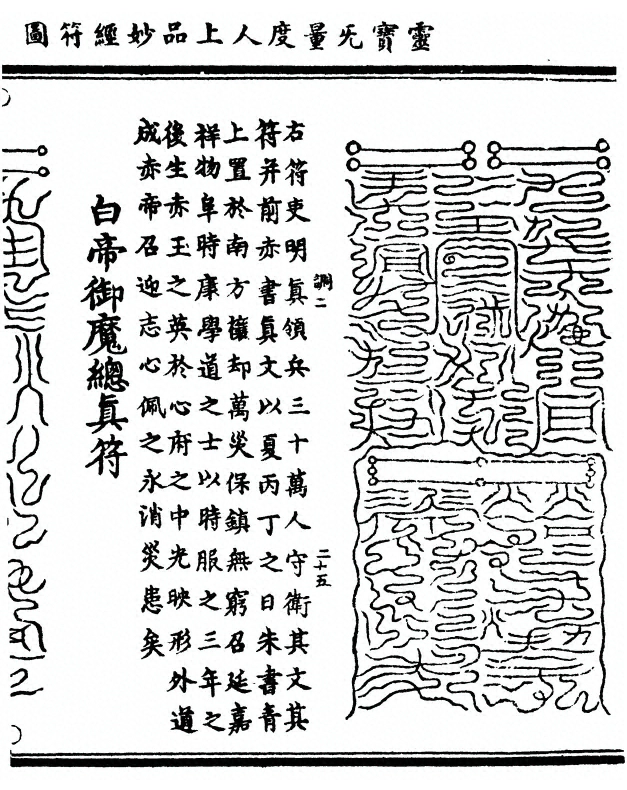 靈寶旡量度人上品妙經符圖
右符吏明眞領兵三十萬人守衛其文其
調二
二十五
符并前赤書眞文以夏丙丁之日朱書青
上置於南方禳却萬災保鎮無窮召延嘉
祥物阜時康學道之士以時服之三年之
後生赤玉之英於心府之中光映形外道
成赤帝召迎志心佩之永消災患矣
白帝御魔總眞符